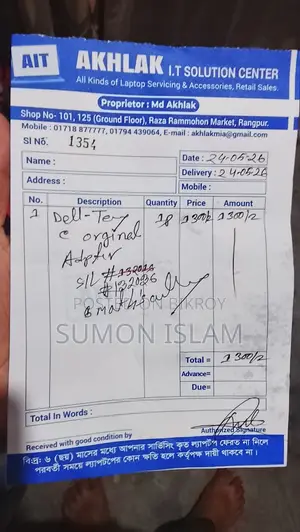 AIT
AKHLAK I.T SOLUTION CENTER
All Kinds of Laptop Servicing & Accessories, Retail Sales.
Proprietor : Md Akhlak
Shop No- 101, 125 (Ground Floor), Raza Rammohon Market, Rangpur.
Mobile : 01718 877777, 01794 439064, E-mail : akhlakmia@gmail.com
Sl No. 1354
Name :
Date : 24-05-26
Address :
Delivery : 24-05-26
Mobile :
No. Description Quantity Price Amount
1 Dell-Tey 1p 1300/2 1300/2
c orginal
Adpter
S/L #
#132026
6 month
POSTED ON BIKROY
SUMON ISLAM
Total = 1300/2
Advance=
Due=
Total In Words :
Received with good condition by
Authorized Signature
বিঃদ্রঃ ৬ (ছয়) মাসের মধ্যে আপনার সার্ভিসিং কৃত ল্যাপটপ ফেরত না নিলে
পরবর্তী সময়ে ল্যাপটপের কোন ক্ষতি হলে কর্তৃপক্ষ দায়ী থাকবে না।